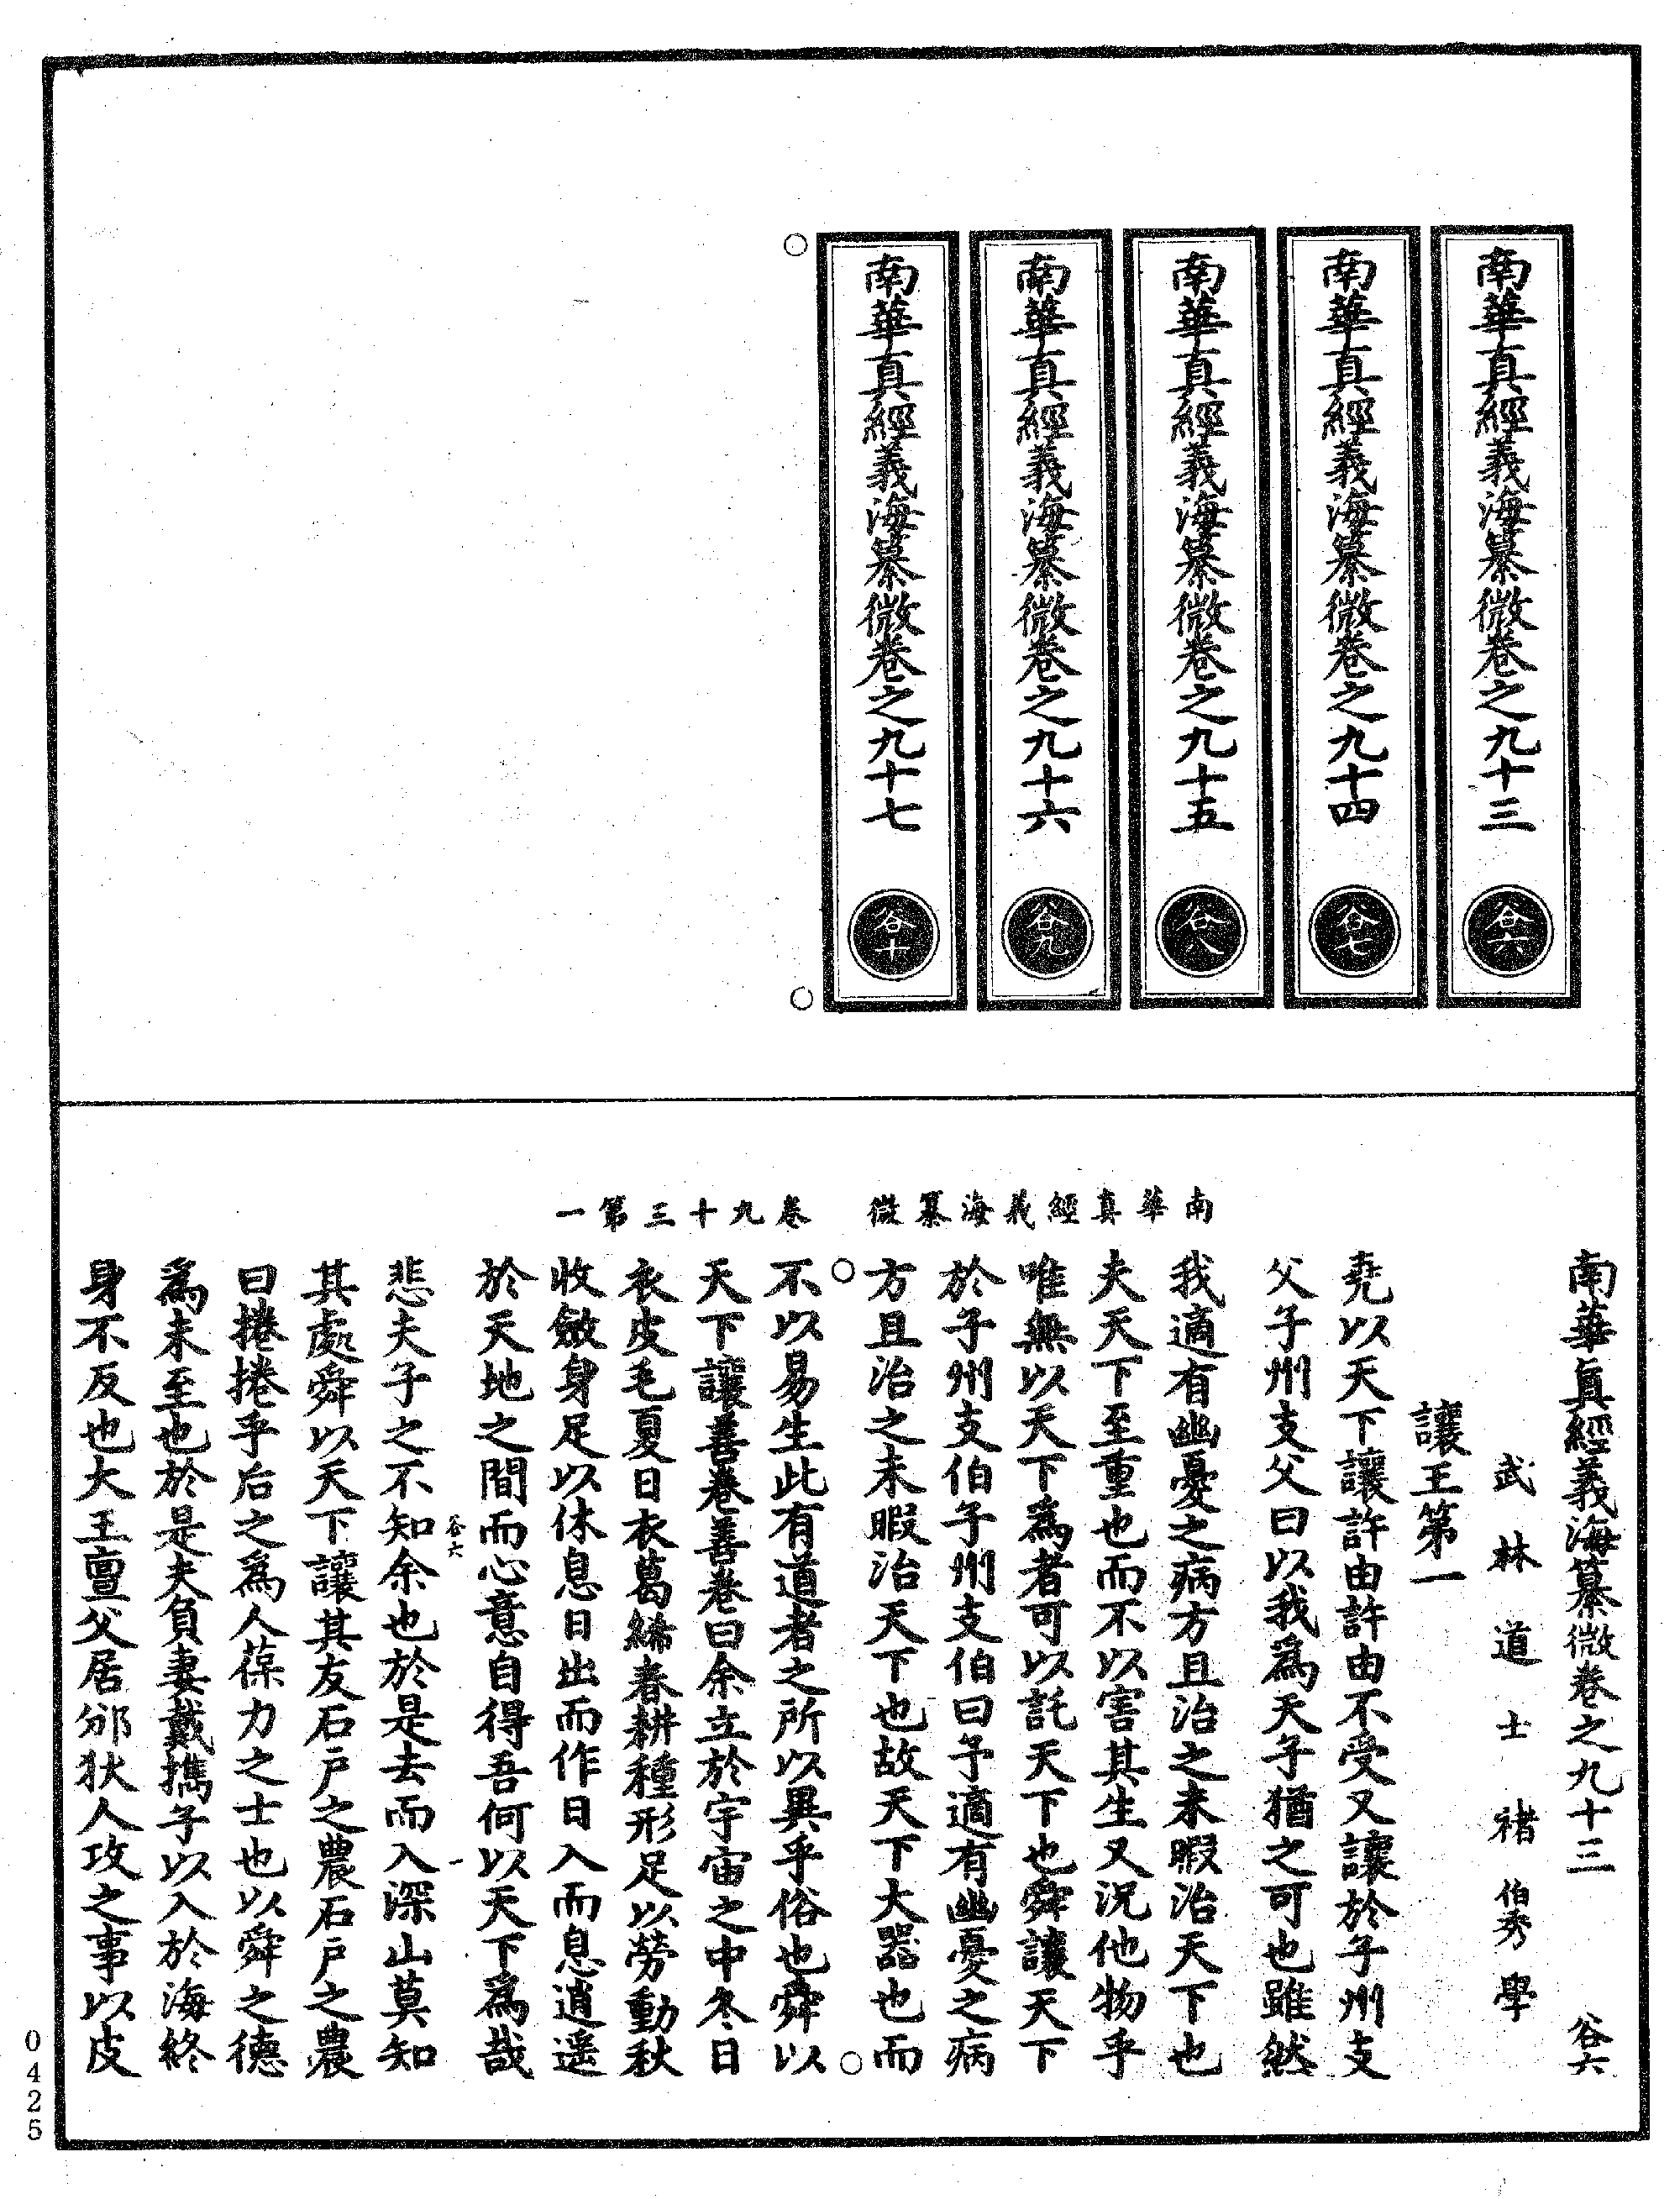 南華真經義海纂微卷之九十三
谷六
南華真經義海纂微卷之九十四
谷七
南華真經義海纂微卷之九十五
谷八
南華真經義海纂微卷之九十六
谷九
南華真經義海纂微卷之九十七
谷十
南華真經義海纂微　卷九十三第一
南華眞經義海纂微卷之九十三　谷六
武林道士褚伯秀學
讓王第一
堯以天下讓許由許由不受又讓於子州支
父子州支父曰以我爲天子猶之可也雖然
我適有幽憂之病方且治之未暇治天下也
夫天下至重也而不以害其生又況他物乎
唯無以天下爲者可以託天下也舜讓天下
於子州支伯子州支伯曰予適有幽憂之病
方且治之未暇治天下也故天下大器也而
不以易生此有道者之所以異乎俗也舜以
天下讓善卷善卷曰余立於宇宙之中冬日
衣皮毛夏日衣葛絺春耕種形足以勞動秋
收斂身足以休息日出而作日入而息逍遥
於天地之間而心意自得吾何以天下爲哉
谷六
悲夫子之不知余也於是去而入深山莫知
其處舜以天下讓其友石戶之農石戶之農
曰捲捲乎后之爲人葆力之士也以舜之德
爲未至也於是夫負妻戴攜子以入於海終
身不反也大王亶父居邠狄人攻之事以皮
0425